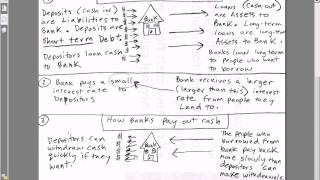 Deposits (cash in)
are Liabilities to
Bank. Deposits are
Short term Debt.
Depositors loan cash
to Bank
Bank
Loans (cash out)
are Assets to
Bank. Long-term
loans are long-term
Assets to Bank.
Banks loan long-term
to people who want
to borrow
2 Bank pays a small
interest rate to
Depositors
Bank receives a larger
(larger than this) interest
rate from people they
Lend to.
3 How Banks pay out cash
Depositors can
withdraw cash
quickly if they
want.
Bank
The people who
borrowed from
Bank pay back
more slowly than
depositors can
make withdrawals.